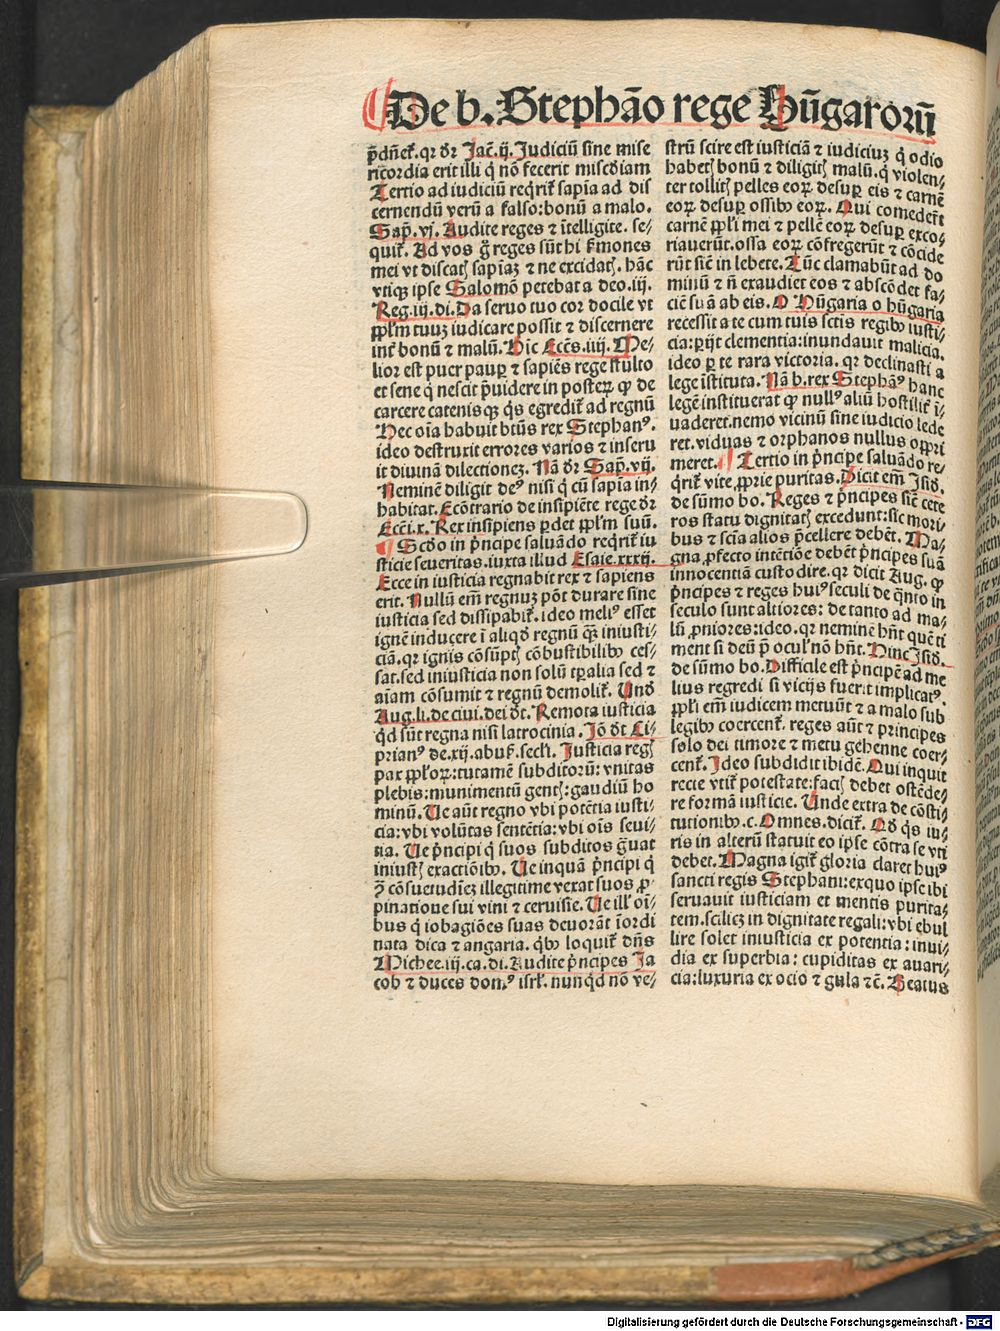 De b. Stephāo rege Hūgarorū
p̄dn̄et̄. qr d̄r Jac̄. ij. Judiciū sine mise
ricordia erit illi q̇ nō fecerit misc̄diam
Tertio ad iudiciū reqrit̄ sapīa ad dis
cernendū verū a falso: bonū a malo.
Sap̄. vj. Audite reges ⁊ ītelligite. se-
quit̄. Ad vos g̊ reges sūt hi s̄mones
mei vt discatꝭ sapīaꝫ ⁊ ne excidatꝭ. hāc
vtiqꝫ ipse Salomō petebat a deo. iij.
Reg. iij. di. Da seruo tuo cor docile vt
ꝓpl̄m tuuꝫ iudicare possit ⁊ discernere
int̄ bonū ⁊ malū. Hic Eccēs. iiij. Me-
lior est puer paup̱ ⁊ sapiēs rege stulto
et sene q̇ nescit p̄uidere in posteꝝ ꝙ de
carcere catenisqꝫ q̇s egredit̄ ad regnū
Hec oīa habuit btūs rex Stephanꝰ.
ideo destruxit errores varios ⁊ inseru
it diuinā dilectioneꝫ. Nā d̄r Sap̄. vij.
Neminē diligit deꝰ nisi q̇ cū sapīa in-
habitat. Ecōtrario de insipiēte rege d̄r
Eccī. x. Rex insipiens p̱det ꝓpl̄m suū.
¶ Scd̄o in p̄ncipe saluādo reqrit̄ iu
sticie seueritas. iuxta illud Esaie. xxxij.
Ecce in iusticia regnabit rex ⁊ sapiens
erit. Nullū em̄ regnuꝫ pōt durare sine
iusticia sed dissipabit̄. ideo meliꝰ esset
ignē inducere ī aliqd̄ regnū q̄ꝫ iniusti-
ciā. qr ignis cōsūptꝭ cōbustibilibꝰ ces-
sat. sed iniusticia non solū tp̱alia sed ⁊
aīam cōsumit ⁊ regnū demolit̄. Und̄
Aug. li. de ciui. dei d̄t. Remota iusticia
qd̄ sūt regna nisi latrocinia. Jō d̄t Ci-
prianꝰ de. xij. abus̄. secl̄i. Justicia regꝭ
pax ꝓpl̄oꝝ: tutamē subditorū: vnitas
plebis: munimentū gentꝭ: gaudiū ho
minū. Ue aūt regno vbi potētia iusti-
cia: vbi volūtas sentētia: vbi oīs seui-
tia. Ue p̄ncipi q̇ suos subditos g̊uat
iniustꝭ exactiōibꝰ. Ue inquā p̄ncipi q̇
cōsuetudīeꝫ illegitime vexat suos ꝓ
pinatione sui vini ⁊ ceruisie. Ue ill̄ oī-
bus q̇ iobagiōes suas deuorāt īordi
nata dica ⁊ angaria. q̇bꝰ loquit̄ dn̄s
Michee. iij. ca. di. Audite p̄ncipes Ja
cob ⁊ duces domꝰ isrl̄. nunqd̄ nō ve-
strū scire est iusticiā ⁊ iudiciuꝫ q̇ odio
habetꝭ bonū ⁊ diligitꝭ malū. q̇ violen-
ter tollitꝭ pelles eoꝝ desup̱ eis ⁊ carnē
eoꝝ desup̱ ossibꝰ eoꝝ. Qui comeder̄t
carnē ꝓpl̄i mei ⁊ pellē eoꝝ desup̱ exco-
riauerūt. ossa eoꝝ cōfregerūt ⁊ cōcide
rūt sic̄ in lebete. Tūc clamabūt ad do
minū ⁊ n̄ exaudiet eos ⁊ abscōdet fa-
ciē suā ab eis. O Hūgaria o hūgaria
recessit a te cum tuis sctīs regibꝰ iusti-
cia: p̱ijt clementia: inundauit malicia.
ideo p̱ te rara victoria. qr declinasti a
lege īstituta. Nā b. rex Stephaꝰ hanc
legē instituerat ꝙ nullꝰ aliū hostilit̄ ī-
uaderet. nemo vicinū sine iudicio lede
ret. viduas ⁊ orphanos nullus opp̱ri
meret. ¶ Tertio in p̄ncipe saluādo re-
q̇rit̄ vite ꝓprie puritas. Dicit em̄ Jsid̄.
de sūmo bo. Reges ⁊ p̄ncipes sic̄ cete
ros statu dignitatꝭ excedunt: sic mori-
bus ⁊ sciā alios p̄cellere debēt. Ma-
gna ꝓfecto intētiōe debēt p̄ncipes suā
innocentiā custodire. qr dicit Aug. ꝙ
p̄ncipes ⁊ reges huiꝰ seculi de q̇nto in
seculo sunt altiores: de tanto ad ma-
lū ꝓniores: ideo. qr neminē hn̄t quē ti
ment si deū p̄ ocul̄ nō hn̄t. Hinc Jsid̄.
de sūmo bo. Difficile est p̄ncipē ad me
lius regredi si vicijs fuerit implicatꝰ.
ꝓpl̄i em̄ iudicem metuūt ⁊ a malo sub
legibꝰ coercent̄. reges aūt ⁊ principes
solo dei timore ⁊ metu gehenne coer-
cent̄. Jdeo subdidit ibidē. Qui inquit
recte vtit̄ potestate: facꝭ debet ostēde-
re formā iusticie. Unde extra de cōsti-
tutionibꝰ. c. Omnes. dicit̄. Qd̄ q̇s iu-
ris in alterū statuit eo ipse cōtra se vti
debet. Magna igit̄ gloria claret huiꝰ
sancti regis Stephani: exquo ipse ibi
seruauit iusticiam et mentis purita-
tem. scilicꝫ in dignitate regali: vbi ebul
lire solet iniusticia ex potentia: inui-
dia ex superbia: cupiditas ex auari-
cia: luxuria ex ocio ⁊ gula ⁊c̄. Beatus
Digitalisierung gefördert durch die Deutsche Forschungsgemeinschaft - DFG